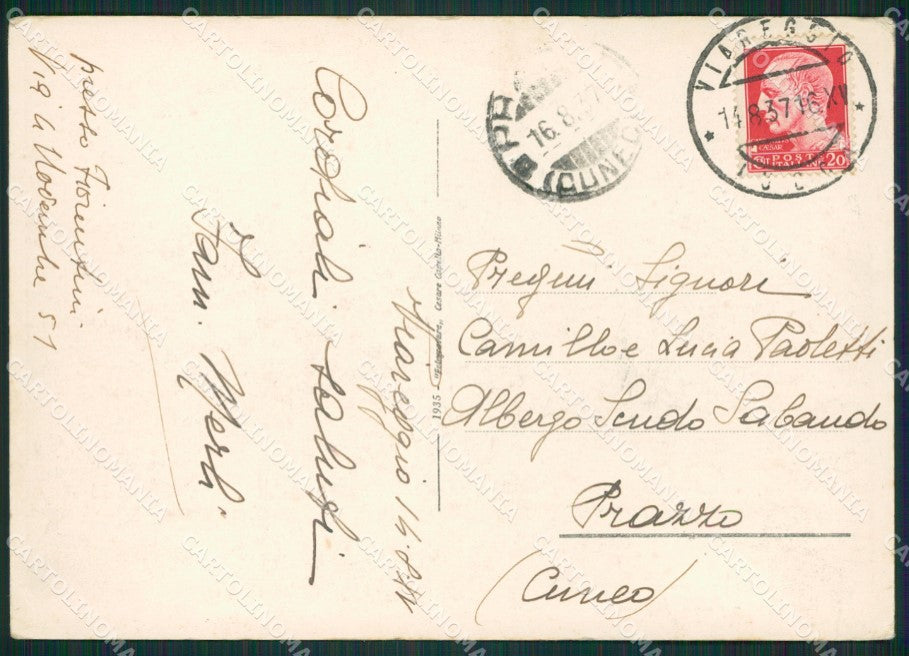 presso Fiorentini
Via 4 Novembre 51
Viareggio 14.8.
Cordiali saluti
Fam. Merli
1935 "Fotogravure" Cesare Capello-Milano
16.8.37
(CUNEO)
VIAREGGIO
14.8.37 16 XV
CAESAR
POSTE
ITALIANE 20
Pregmi Signori
Camillo e Lucia Paoletti
Albergo Scudo Sabaudo
Prazzo
(Cuneo)
CARTOLINOMANIA